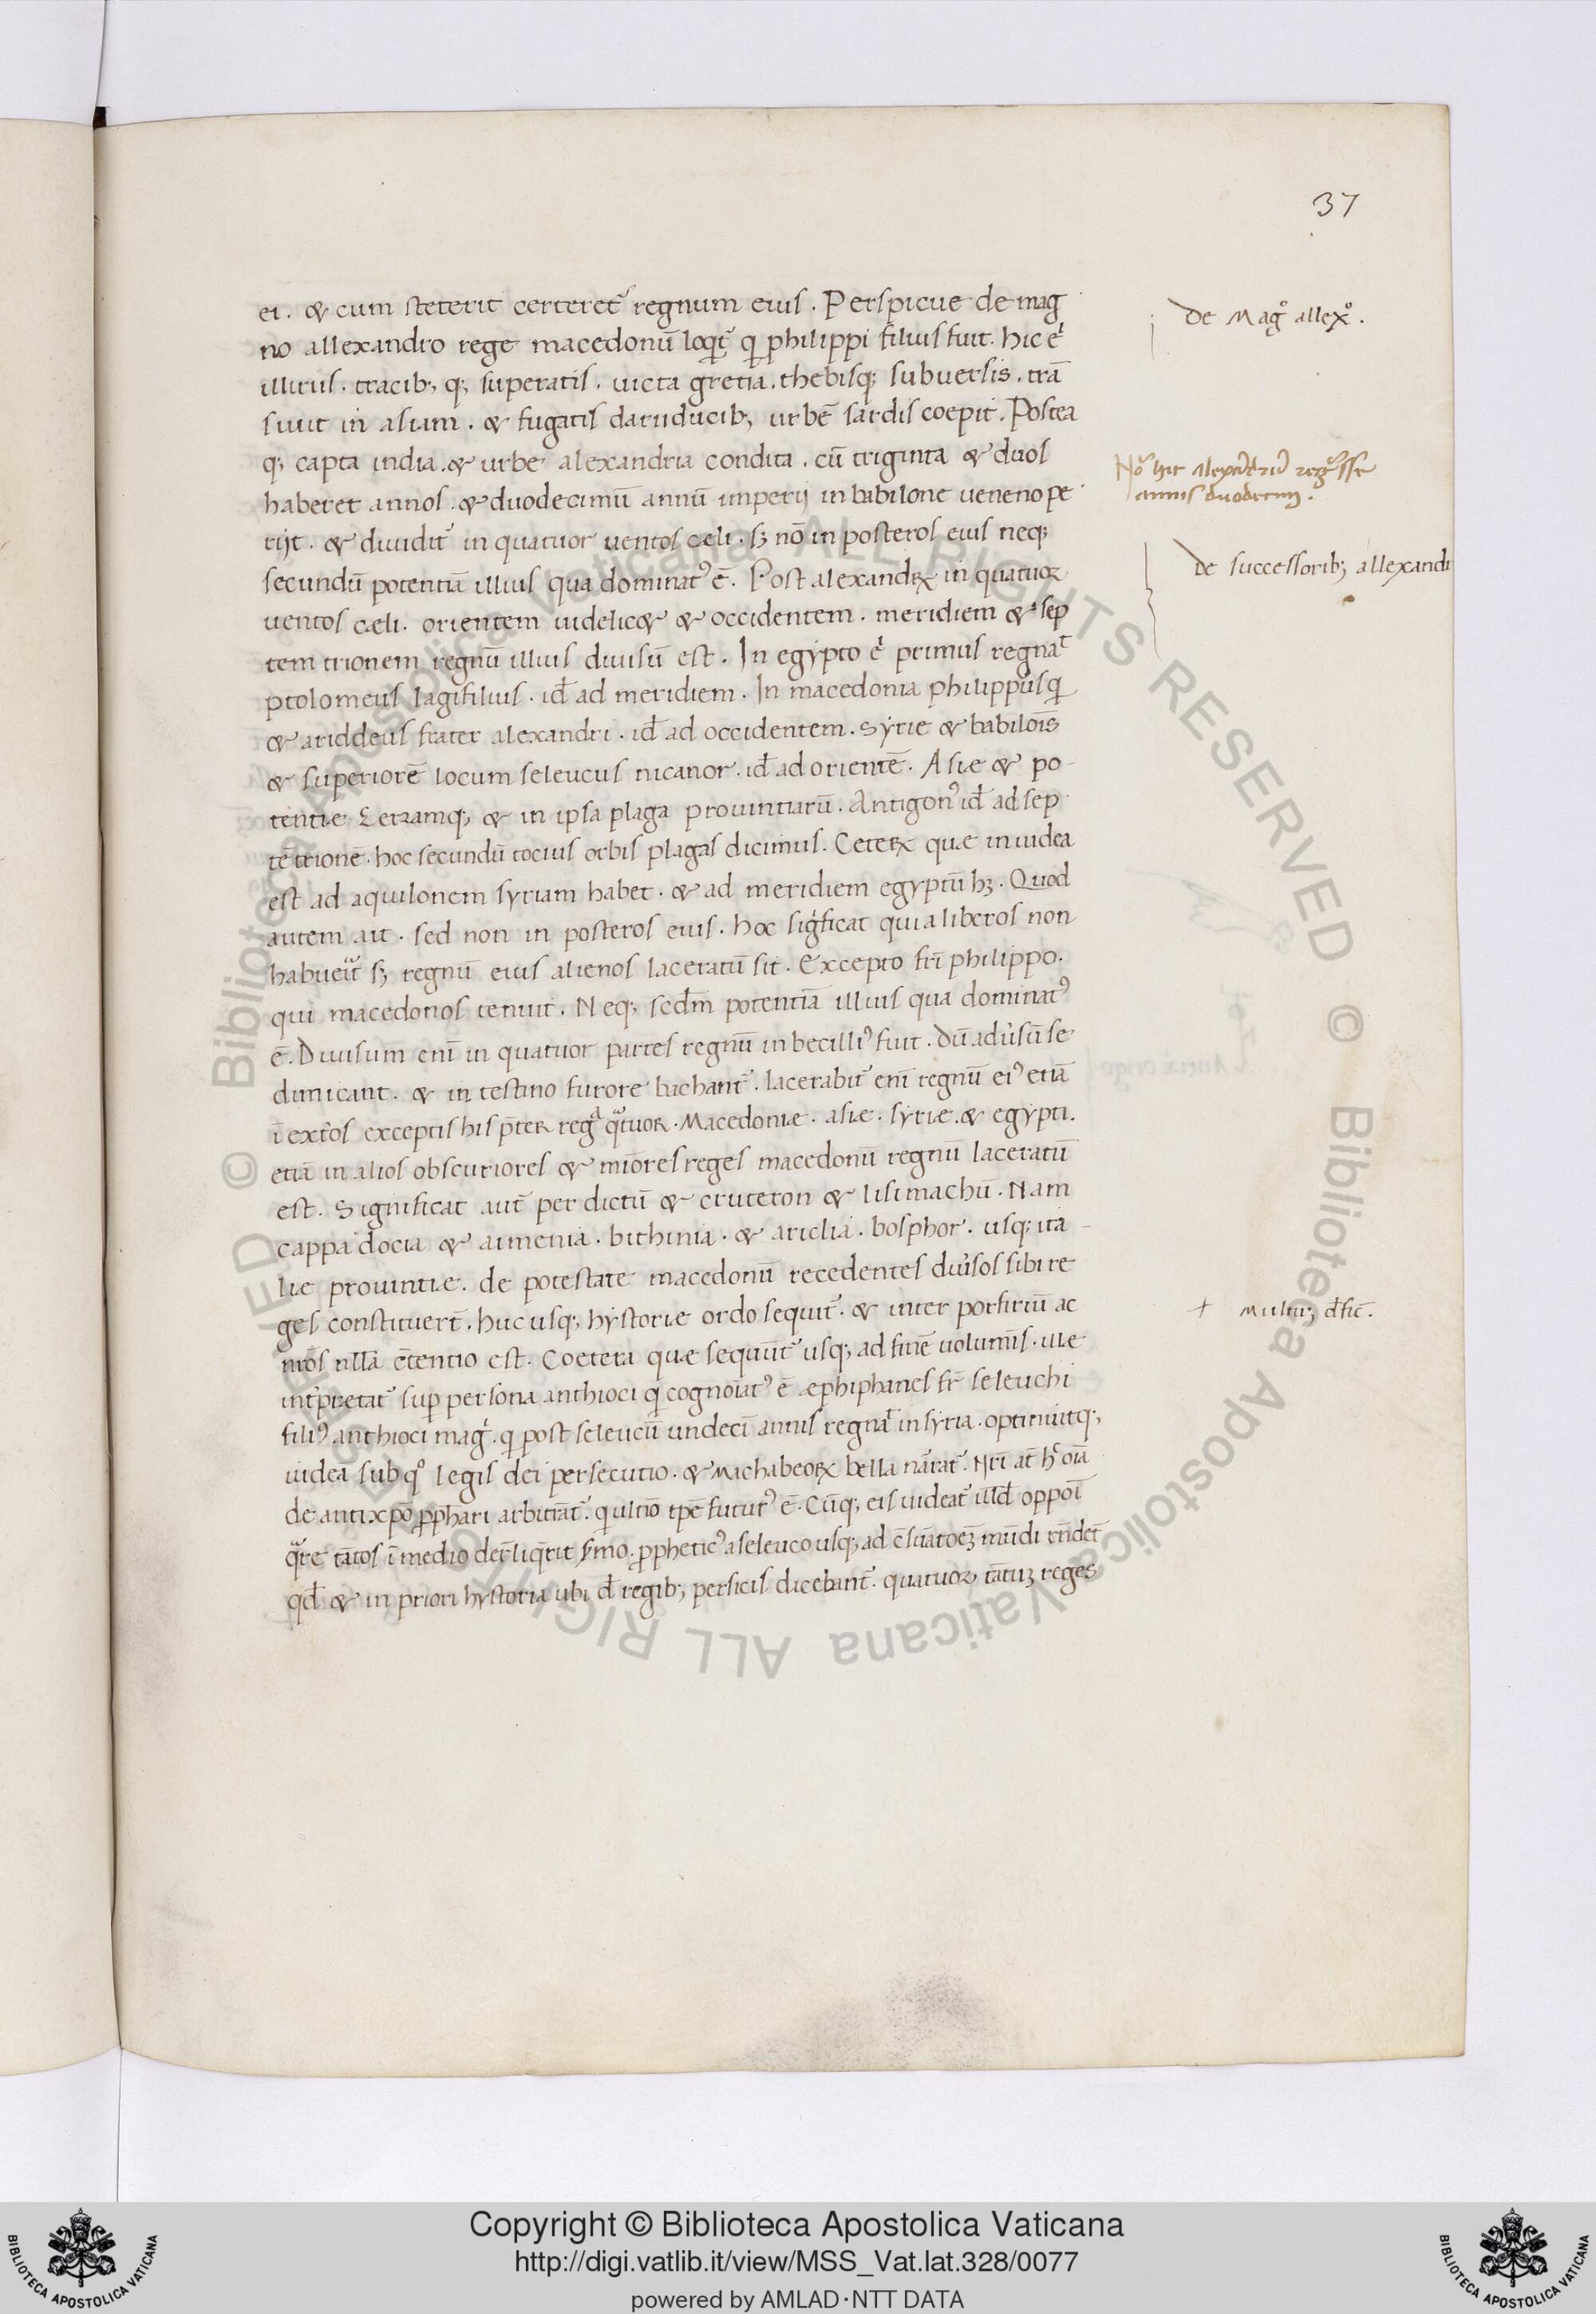 37
ei. & cum steterit certeret᷑ regnum eius. Perspicue de mag
no allexandro rege macedonū loqit᷑ q philippi filius fuit. hic ē
illirus. tracib; q; superatis. uicta gretia. thebisq; subuersis. trā
siuit in asiam. & fugatis darii ducib; urbē sardis coepit. Postea
q; capta india. & urbe alexandria condita. cū triginta & duos
haberet annos. & duodecimū annū imperij in babilone ueneno pe
rijt. & diuidit᷑ in quatuor uentos cæli. s; nō in posteros eius neq;
secundū potentiā illius qua dominat᷒ ē. Post alexandrꝝ in quatuor
uentos cæli. orientem uidelic& & occidentem. meridiem & sep
tem trionem regnū illius diuisū est. In egypto ē primus regnat
ptolomeus lagi filius. id̄ ad meridiem. In macedonia philippus q
& ariddeus frater alexandri. id̄ ad occidentem. Syrie & babilōis
& superiorē locum seleucus nicanor. id̄ ad orientē. Asiæ & po
tentiæ & in ipsa plaga prouintiarū. Antigon᷒ id̄ ad sep
tētrionē. hoc secundū tocius orbis plagas dicimus. Ceterꝝ quæ in iudea
est ad aquilonem syriam habet. & ad meridiem egyptū hȝ. Quod
autem ait. sed non in posteros eius. hoc sigficat quia liberos non
habueit s; regnū eius alienos laceratū sit. Excepto frī philippo.
qui macedonos tenuit. Neq; secd̄m potentiā illius qua dominat᷒
ē. Diuisum enī in quatuor partes regnū inbecilli᷒ fuit. dū adusū se
dimicant. & in testino furore bachant᷑. lacerabit᷑ enī regnū ei᷒ etiā
ī extos exceptis his p̄ter reg qtuor. Macedoniæ. asiæ. syriæ. & egypti.
etiā in alios obscuriores & mīores reges macedonū regnū laceratū
est. Significat aut̄ per dictū & cruteron & lisimachū. Nam
cappadocia & aimenia. bithinia. & ariclia. bosphor. usq; ita
liæ prouintiæ. de potestate macedonū recedentes duisos sibi re
ges constituert̄. huc usq; hystoriæ ordo sequit᷑. & inter porfiriū ac
nr̄os nlla ētentio est. Coetera quæ sequūt᷑ usq; ad finē uolumīs. ulæ
intpretat᷑ sup persona anthioci q cognoīat᷒ ē æphiphanes fr̄ seleuchi
fili᷒ anthioci mag. q post seleucū undecī annis regnat in syria. optinuitq;
iudea sub q legis dei persecutio. & machabeorꝝ bella nārat᷑. Nr̄i at̄ h oīa
de antixpō ꝓphari arbitrāt᷑. q ultīo tpē futur᷒ ē. Cūq; eis uideat᷑ illd̄ oppoī
qre tātos ī medio derliqrit smo. ꝓphetic᷒ a seleuco usq; ad cōsūatoeȝ mūdi rn̄det
qd̄ & in priori hystoria ubi d̄ regib; persicis dicebant᷑. quatuor tātuȝ reges
de Mag̊ allex̊.
annis duodecim.
de successorib; allexandi
+ Multuȝ d̄fic̄.
Copyright © Biblioteca Apostolica Vaticana
http://digi.vatlib.it/view/MSS_Vat.lat.328/0077
powered by AMLAD·NTT DATA
BIBLIOTECA APOSTOLICA VATICANA
BIBLIOTECA APOSTOLICA VATICANA
© Biblioteca Apostolica Vaticana ALL RIGHTS RESERVED © Biblioteca Apostolica Vaticana ALL RIGHTS RESERVED